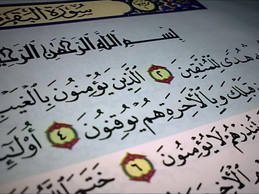 سُورَةُ الْبَقَرَ
بِسْمِ اللَّهِ الرَّحْمَٰنِ الرَّحِي
هُدًى لِلْمُتَّقِينَ ٢ الَّذِينَ يُؤْمِنُونَ بِالْغَيْبِ
قَبْلِكَ وَبِالْآخِرَةِ هُمْ يُوقِنُونَ ٤ أُولَٰئِ
تُنْذِرْهُمْ لَا يُؤْمِنُونَ ٦ خَتَمَ اللَّهُ